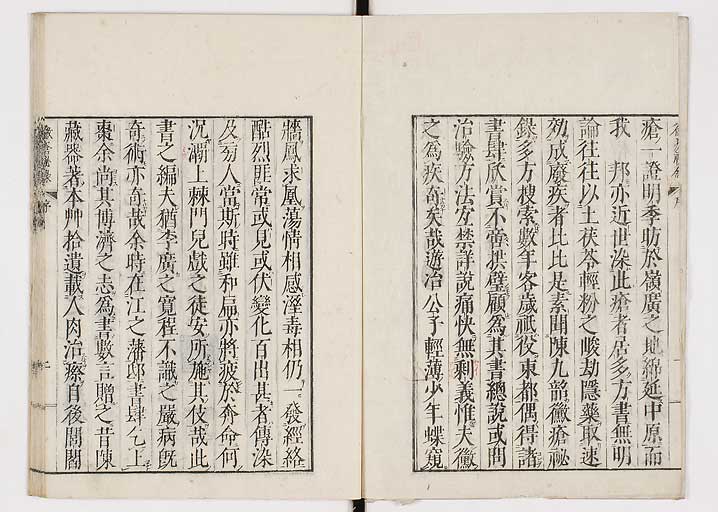 瘡一證明季昉於嶺廣之地綿延中原而
我 邦亦近世染此瘡者居多方書無明
論往往以土茯苓輕粉之峻劫隱藥取速
効成廢疾者比比是素聞陳九韶黴瘡祕
錄多方捜索數年客歲祗役東都偶得諸
書肆欣賞不啻拱璧顧爲其書總說或問
治驗方法宜禁詳說痛快無剩義惟夫黴
之爲疾奇矣哉遊冶公子輕薄少年蝶窺
牆鳳求凰蕩情相感溼毒相仍一發經絡
酷烈匪常或見或伏變化百出甚者傳染
及旁人當斯時雖和扁亦將疲於奔命何
況灞上棘門兒戲之徒安所施其伎哉此
書之編夫猶李廣之寬程不識之嚴病旣
奇術亦奇哉余時在江之藩邸書肆乞上
棗余尚其博濟之志爲書數言贈之昔陳
藏器著本艸拾遺載人肉治瘵自後閭閻
序
二